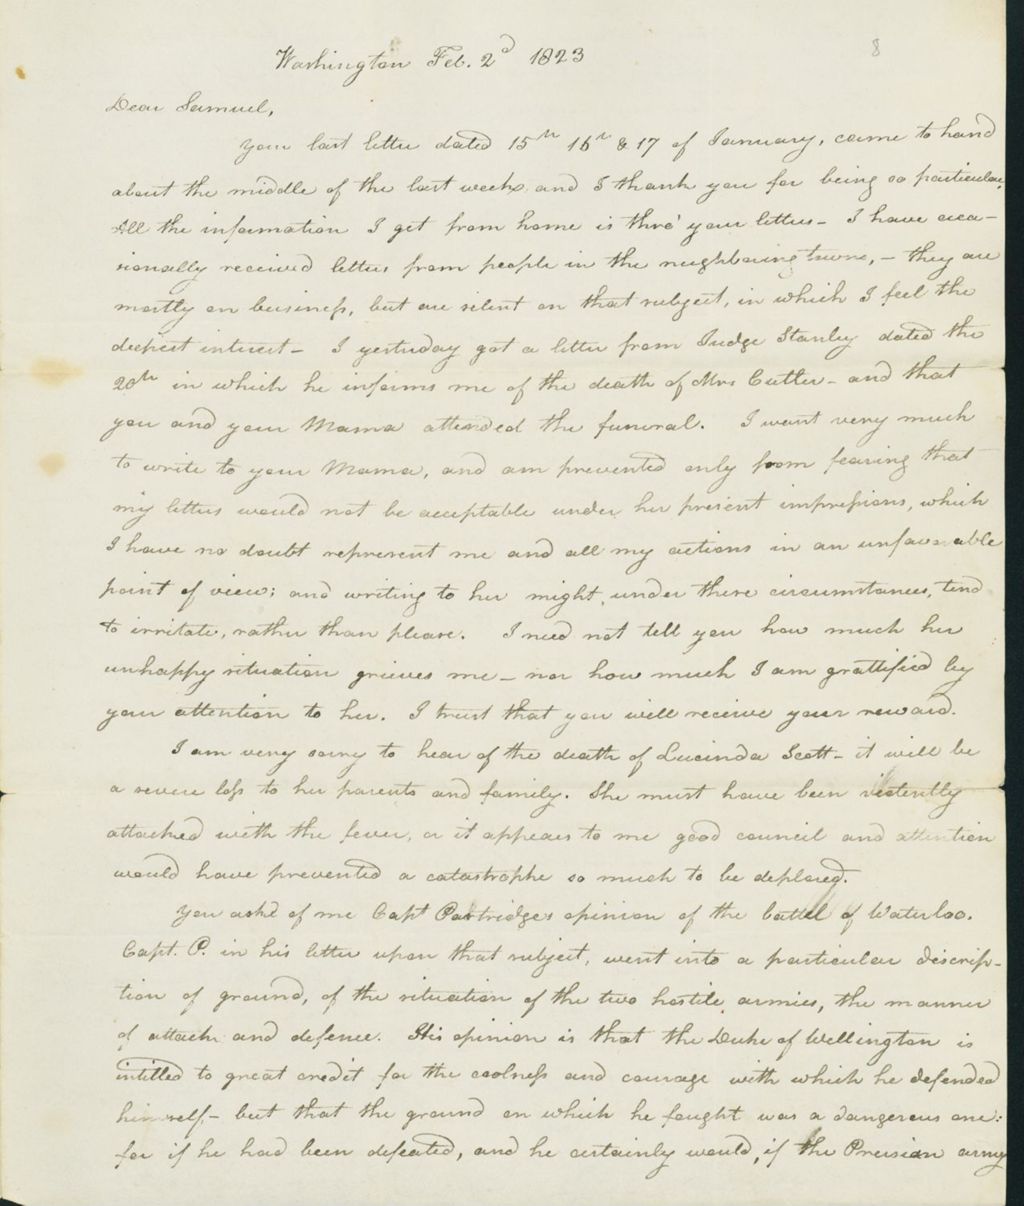 8
Washington Feb. 2d 1823
Dear Samuel,
Your last letter dated 15th 16th & 17 of January, came to hand
about the middle of the last week, and I thank you for being so particular.
All the information I get from home is thro' your letters - I have occa-
sionally received letters from people in the neighbouring towns, - they are
mostly on business, but are silent on that subject, in which I feel the
deepest interest - I yesterday got a letter from Judge Stanley dated the
20th in which he informs me of the death of Mrs Cutler - and that
you and your Mama attended the funeral. I want very much
to write to your Mama, and am prevented only from fearing that
my letters would not be acceptable under her present impressions, which
I have no doubt represent me and all my actions in an unfavorable
point of view; and writing to her might, under these circumstances, tend
to irritate, rather than please. I need not tell you how much her
unhappy situation grieves me - nor how much I am grattified by
your attention to her. I trust that you will receive your reward.
I am very sorry to hear of the death of Lucinda Scott - it will be
a severe loss to her parents and family. She must have been violently
attacked with the fever, or it appears to me good council and attention
would have prevented a catastrophe so much to be deplored.
You asked of me Capt Partridges opinion of the battel of Waterloo.
Capt. P. in his letter upon that subject, went into a particular descrip-
tion of ground, of the situation of the two hostile armies, the manner
of attack and defence. His opinion is that the Duke of Wellington is
intitled to great credit for the coolness and courage with which he defended
himself - but that the ground on which he fought was a dangerous one:
for if he had been defeated, and he certainly would, if the Prussian army